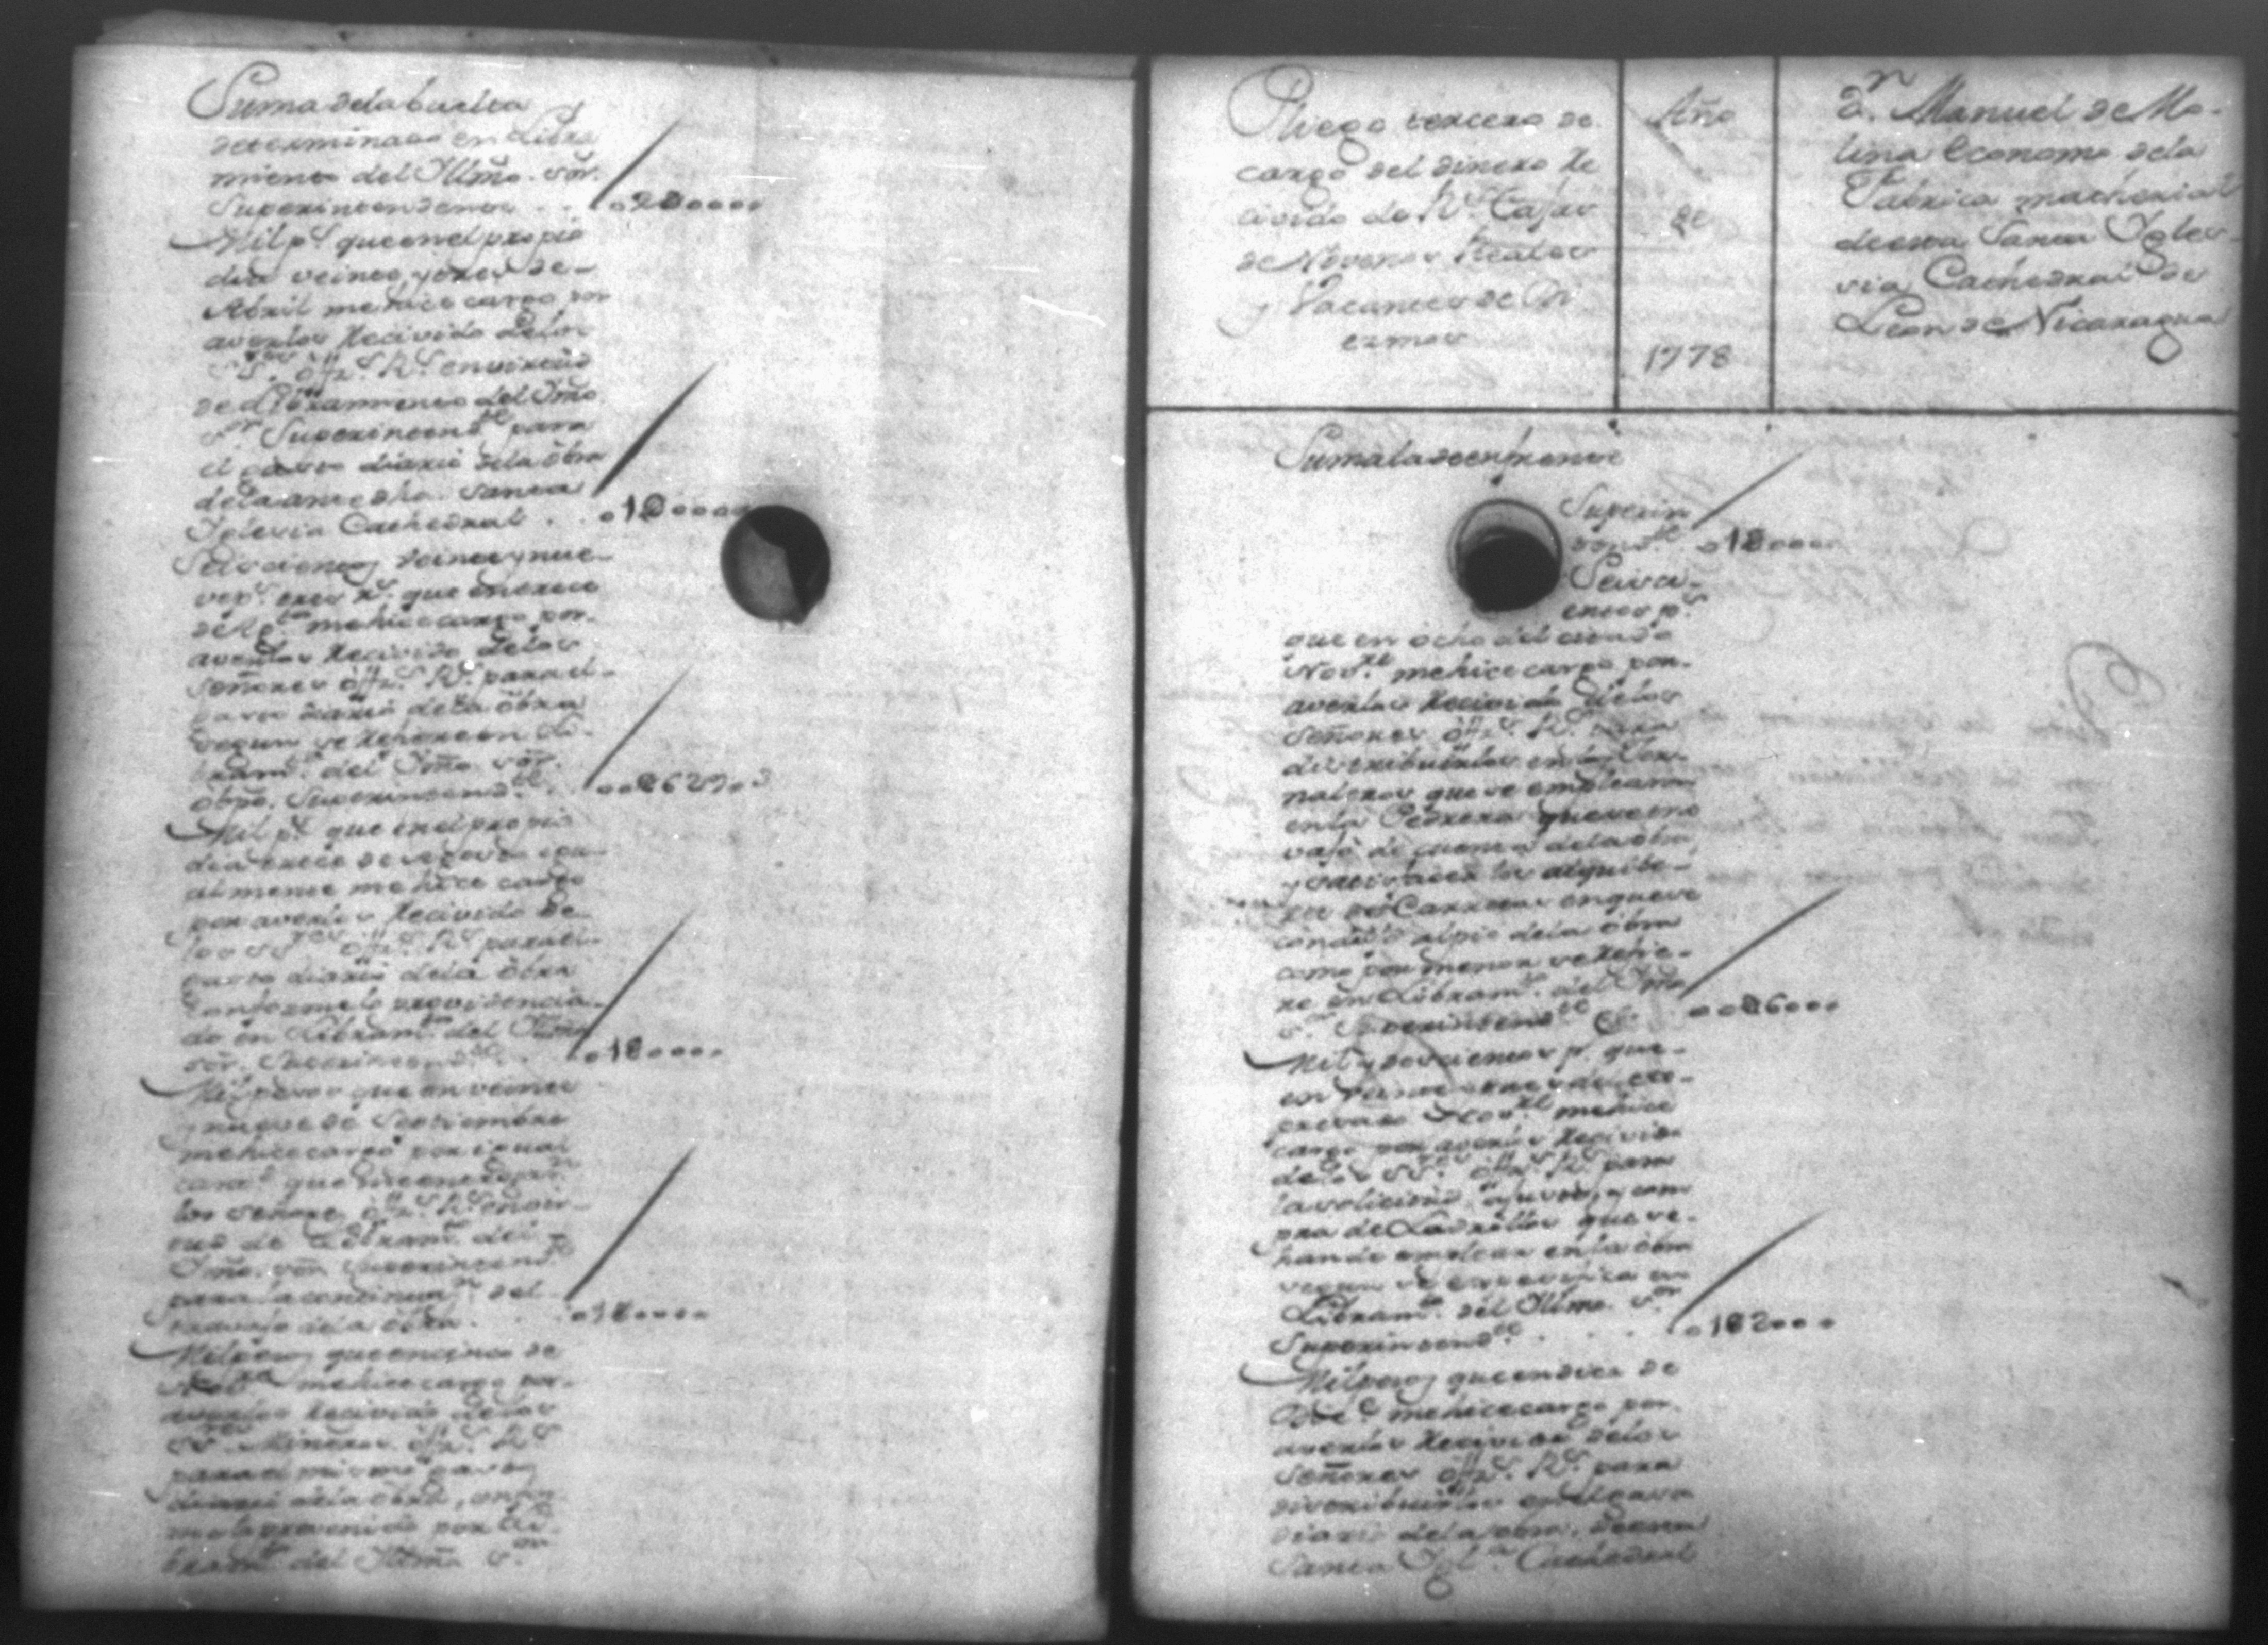 Suma de la buelta
determinado en Libra
miento del Illmo. sor.
Superintendente . . 20000
Mil ps. que en el propio
dia veinte y tres de
Abril me hice cargo por
averlos Recivido delos
SS.res offs. Rs. en virtud
de Libramiento del Ilmo.
Sr. Superintendte. para
el gasto diario dela obra
dela antedha. Santa
Iglesia Cathedral . . 10000
Seiscientos veinte y nue
ve ps. tres rs. que en trece
me hice cargo por
averlos Recivido delos
señores offs. Rs. para el
gasto diario dela obra
segun se Refiere en Li
bramto. del Ilmo. sor.
obpo. Superintendte. . 0629. 3
Mil ps. que en el propio
dia trece de
almente me hice cargo
por averlos Recivido de
los SSres. offs. Rs. para el
gasto diario dela obra
conforme lo providencia
do en Libramto. del Illmo.
sor. Superintendte. . . 10000
Mil pesos que en veinte
y nueve de Septiembre
me hice cargo por igual
cantd. que me entregaron
los señores offs. Rs. en vir
tud de Libramto. del
Ilmo. sor Superintendte.
para la continuan. del
travajo dela obra. . . 10000
Mil pesos que en cinco de
me hice cargo por
averlos Recivido delos
SSres. Mineros offs. Rs.
para el mismo gasto
diario dela obra, confor
me lo prevenido por Li
bramto. del Illmo. Sor.
Pliego tercero de
cargo del dinero Re
civido de Rs. Cajas
de Novenos Reales
y Vacantes de Di
ezmos
Año
de
1778
Dn. Manuel de Mo-
lina Economo dela
Fabrica mathexial
de esta Santa Igle-
sia Cathedral de
Leon de Nicaragua
Suma la de enfrente
Superin
tendte. 10000
Seisci-
entos ps.
que en ocho del citado
Nove. me hice cargo por
averlos Recivido delos
señores offs. Rs. para
distribuirlos en los Jor
naleros que se emplearon
en la Pedrera que se tra
vajó de cuenta dela obra,
y satisfacer los alquile-
res de Carretas en que se
conduce al pie dela obra
como por menor se Refie-
re en Libramto. del Ilmo.
Sr. Superintendte. 0600
Mil y doscientos ps. que
en veinte y tres del ex-
presado Nove. me hice
cargo por averlos Recivido
delos SSres. offs. Rs. para
la solicitud, ajuste, y com
pra de Ladrillos que se
han de emplear en la obra
segun se especifica en
Libramto. del Illmo. Sor.
Superintendte. . . . 10200
Mil pesos que en diez de
Dice. me hice cargo por
averlos Recivido delos
señores offs. Rs. para
distribuirlos en el gasto
diario dela obra de esta
Santa Igla. Cathedral